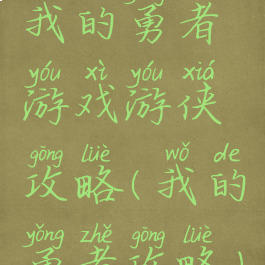 我的勇者
yóu xì yóu xiá
游戏游侠
gōng lüè wǒ de
攻略(我的
yǒng zhě gōng lüè
勇者攻略)